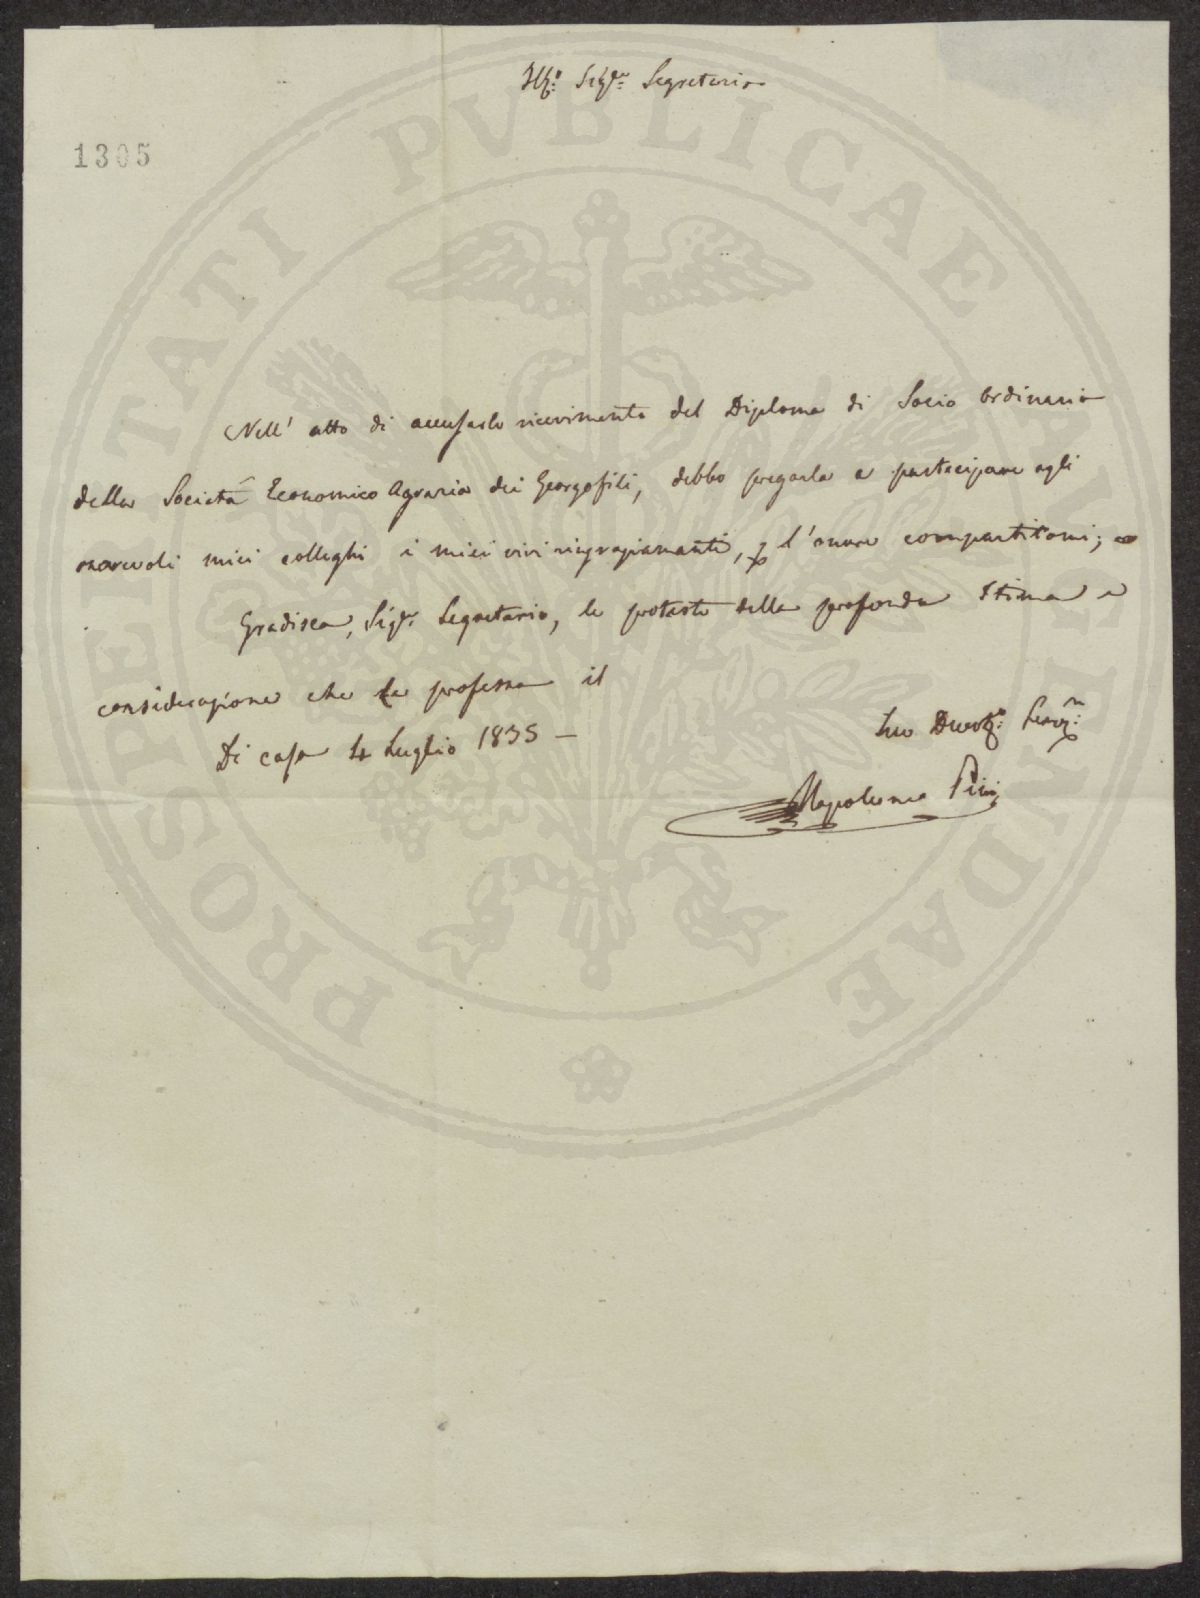 Ill.o Sig.r Segretario
1305
Nell' atto di accusarle ricevimento del Diploma di Socio ordinario
della Società Economico Agraria dei Georgofili, debbo pregarla a partecipare agli
onorevoli miei colleghi i miei vivi ringraziamenti, p l'onore compartitomi; e
Gradisca, Sig.r Segretario, le proteste della profonda stima e
considerazione che Le professa il
Di casa 4 Luglio 1835 —
Suo Devot.o Serv.
Napoleone Pini
PROSPERITATI PVBLICAE AVGENDAE